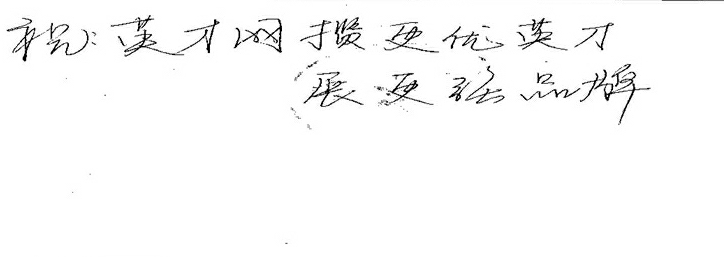 祝:英才网 揽更优英才
展更强品牌